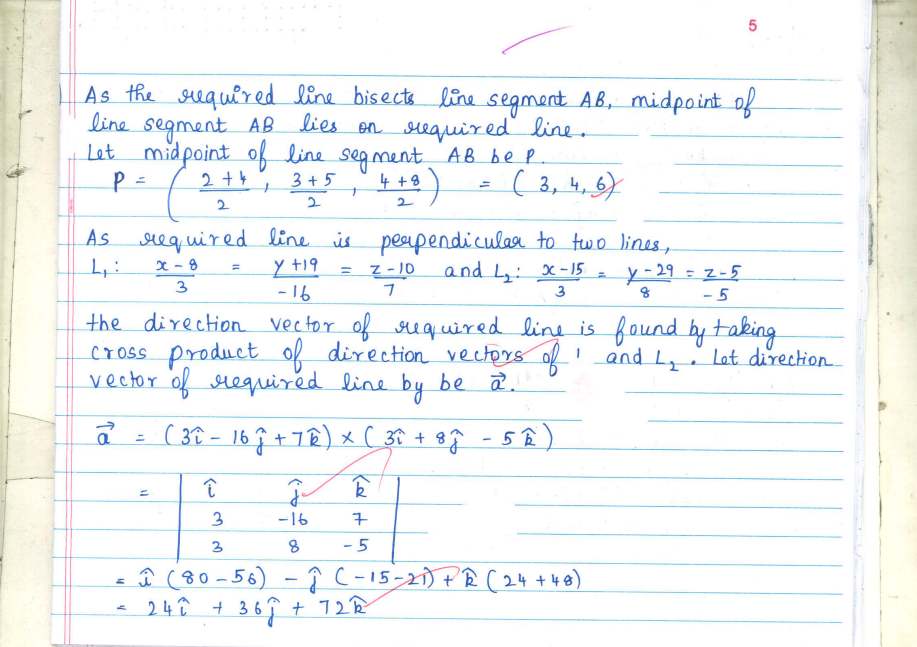 5
As the required line bisects line segment AB, midpoint of
line segment AB lies on required line.
Let midpoint of line segment AB be P.
P = ( (2+4)/2 , (3+5)/2 , (4+8)/2 ) = ( 3, 4, 6)
As required line is perpendicular to two lines,
L₁ : (x-8)/3 = (y+19)/-16 = (z-10)/7 and L₂ : (x-15)/3 = (y-29)/8 = (z-5)/-5
the direction vector of required line is found by taking
cross product of direction vectors of ' and L₂ . Let direction
vector of required line by be a⃗.
a⃗ = (3î - 16ĵ + 7k̂) × ( 3î + 8ĵ - 5k̂)
= | î ĵ k̂ |
| 3 -16 7 |
| 3 8 -5 |
= î (80-56) - ĵ (-15-21) + k̂ (24+48)
= 24î + 36ĵ + 72k̂